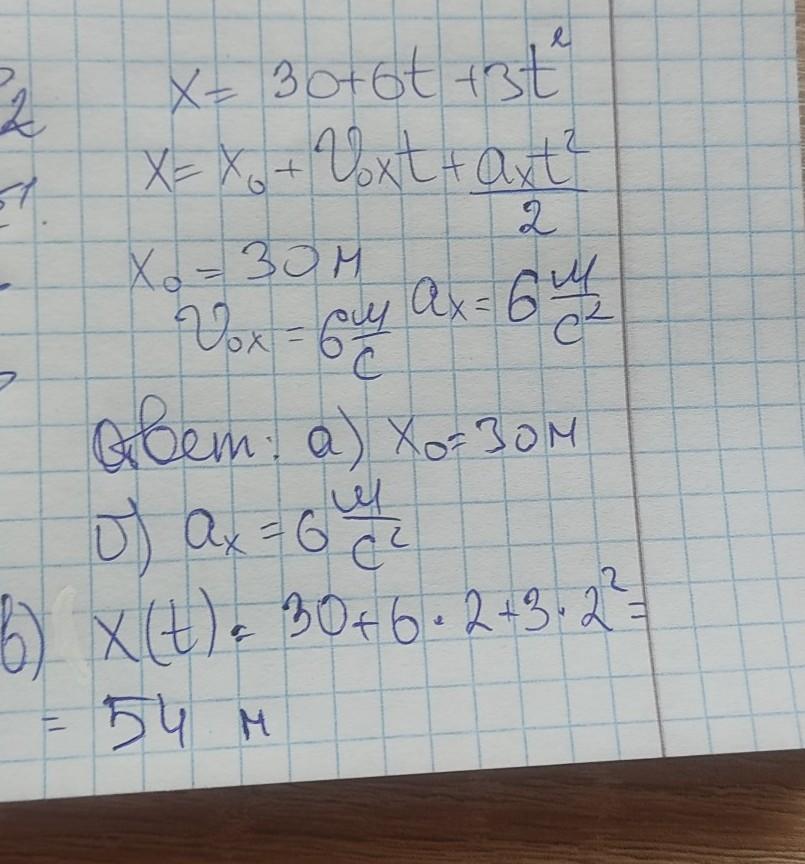 x = 30+6t+3t²
2
x = x₀ + v₀ₓt + aₓt²/2
x₀ = 30 м
v₀ₓ = 6 м/с aₓ = 6 м/с²
Ответ: а) x₀ = 30 м
б) aₓ = 6 м/с²
в) x(t) = 30+6·2+3·2² =
= 54 м